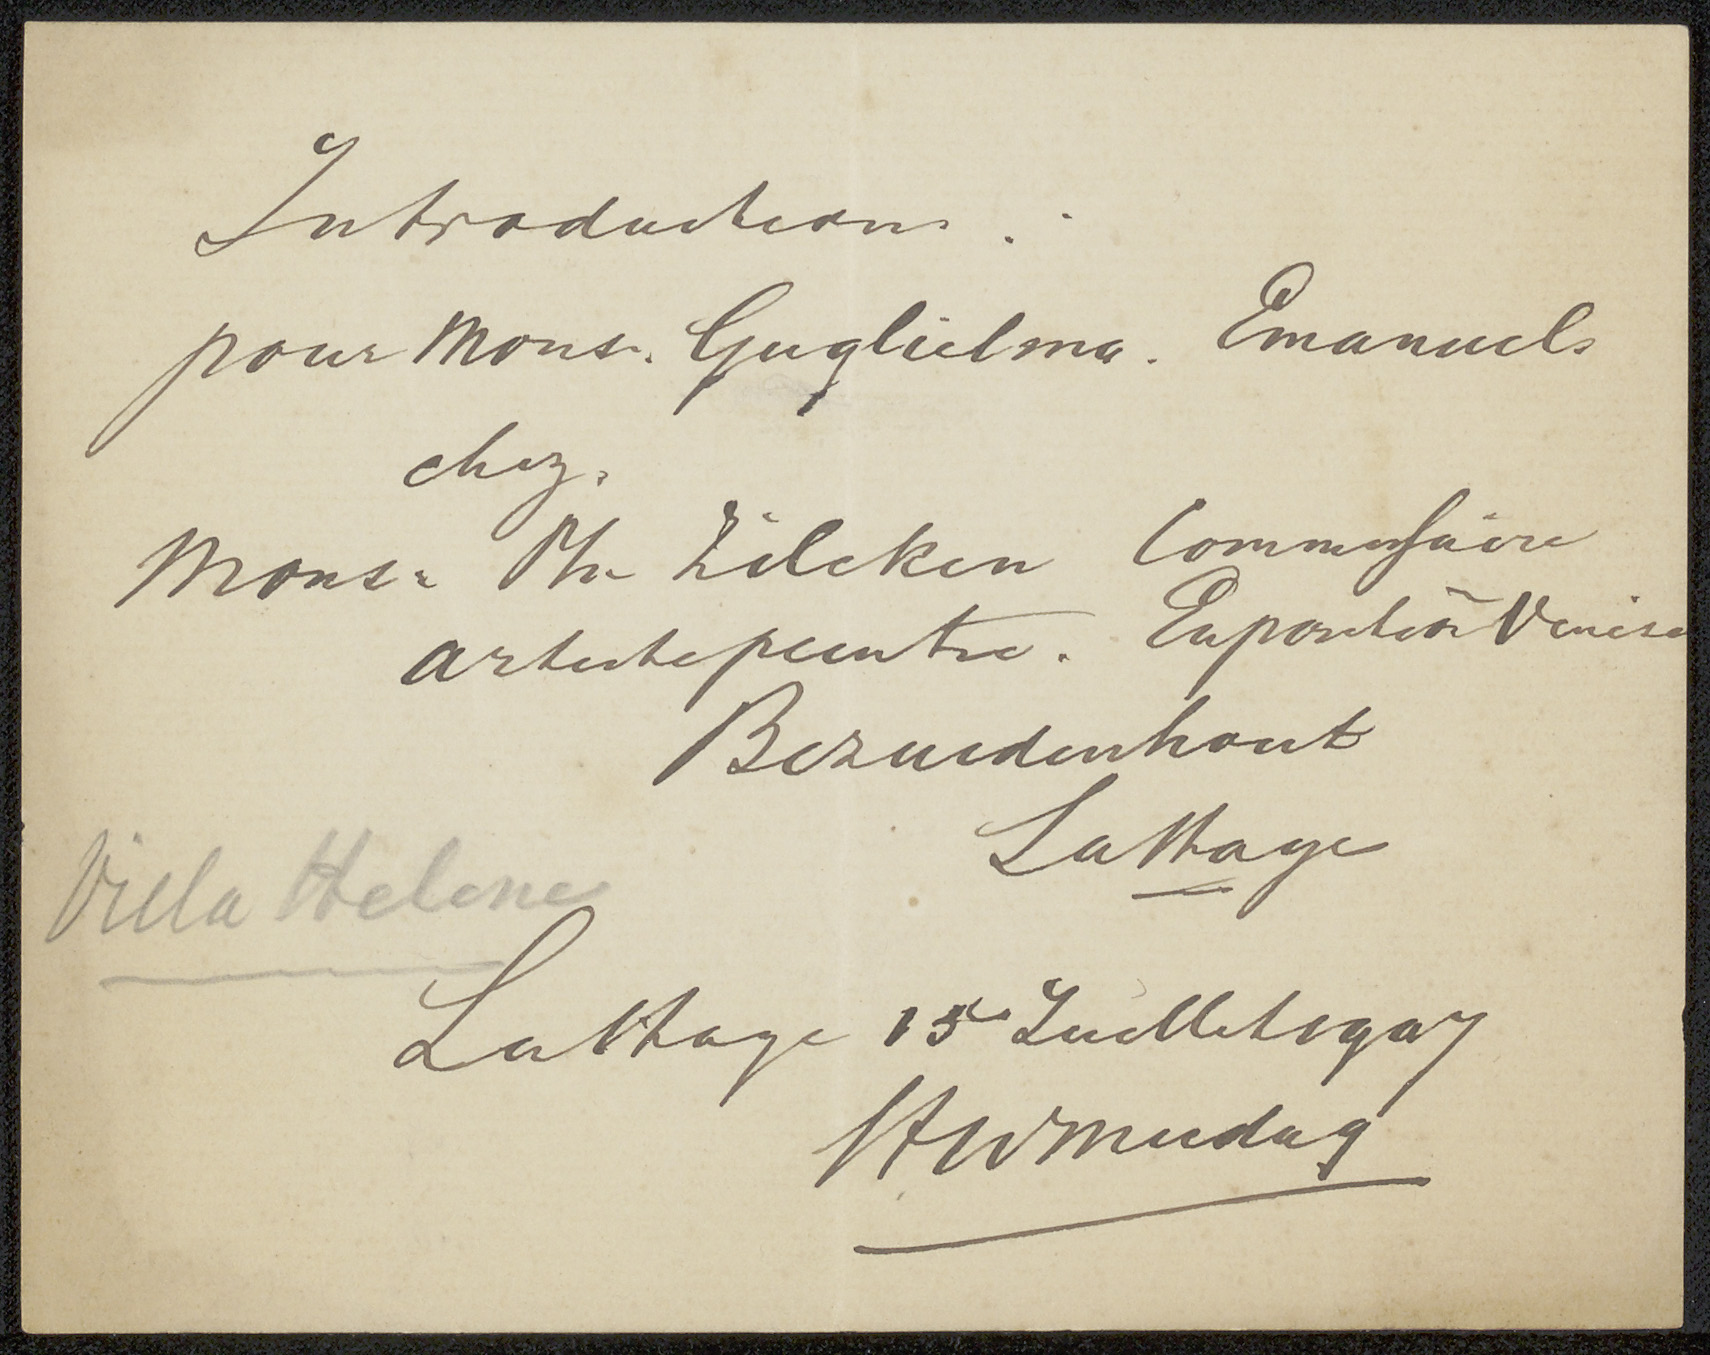 Introduction.
pour Mons. Guglielma. Emanuels
chez.
Mons. Ph. Zilcken Commissaire
artistepeintre. Exposition Venise
Bezuidenhout
La Haye
Villa Helene
La Haye 15 Juillet
HWMesdag